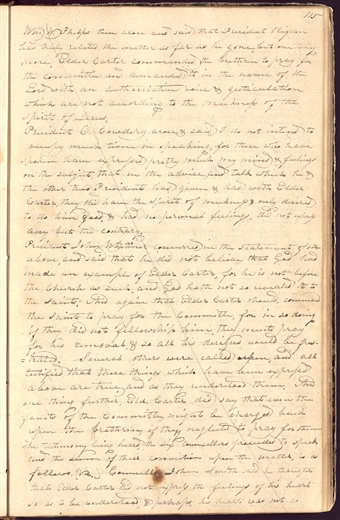 115
Wm. W. Phelps then arose and said that President Rigdon
had truly related the matter as far as he gone, but one thing
more, Elder Carter commanded the brethren to pray for
the committee and demanded it in the name of the
Lord with an authoritative voice & gesticulation
which are not according to the meekness of the
spirit of Jesus.
President O. Cowdery arose & said, I do not intend to
occupy much time in speaking, for those who have
spoken have expressed pretty much my mind & feelings
on the subject, that in the advice and talk which he &
the other two Presidents had given & had with Elder
Carter, they did have the spirit of meekness & only desired
to do him good, & had no personal feelings, did not
any but the contrary.
President John Whitmer concurred in the statements of the
above, and said that he did not believe that God had
made an example of Elder Carter, for he is not before
the Church as such and God hath not so revealed it to
the Saints. And again that Elder Carter should command
the Saints to pray for the Committee, for in so doing
if they did not fellowship him, they must pray
for his removal & so all his desires would be frus-
trated. Several others were called upon, and all
testified that those things which have been expressed
above are true, and as they understood them. And
one thing further, Eld. Carter did say that even the
faults of the Committee might be charged back
upon the brethren if they neglected to pray for them
The testimony being heard the six Counsellors proceeded to speak
and the sum of their convictions upon the matter, is as
follows, viz. Counsellor John Smith said he thought
that Elder Carter did not express the feelings of his heart
so as to be understood & perhaps his heart was not so